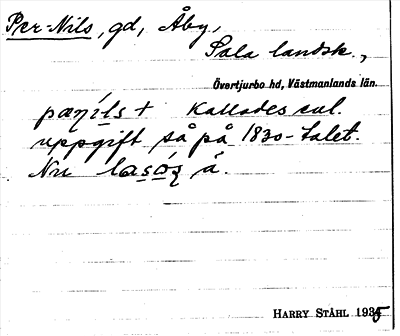 Per-Nils, gd, Åby,
Sala landsk.,
Övertjurbo hd, Västmanlands län.
pæṇíls + Kallades enl.
uppgift så på 1830-talet.
Nu lasóṇ å.
HARRY STÅHL 1935